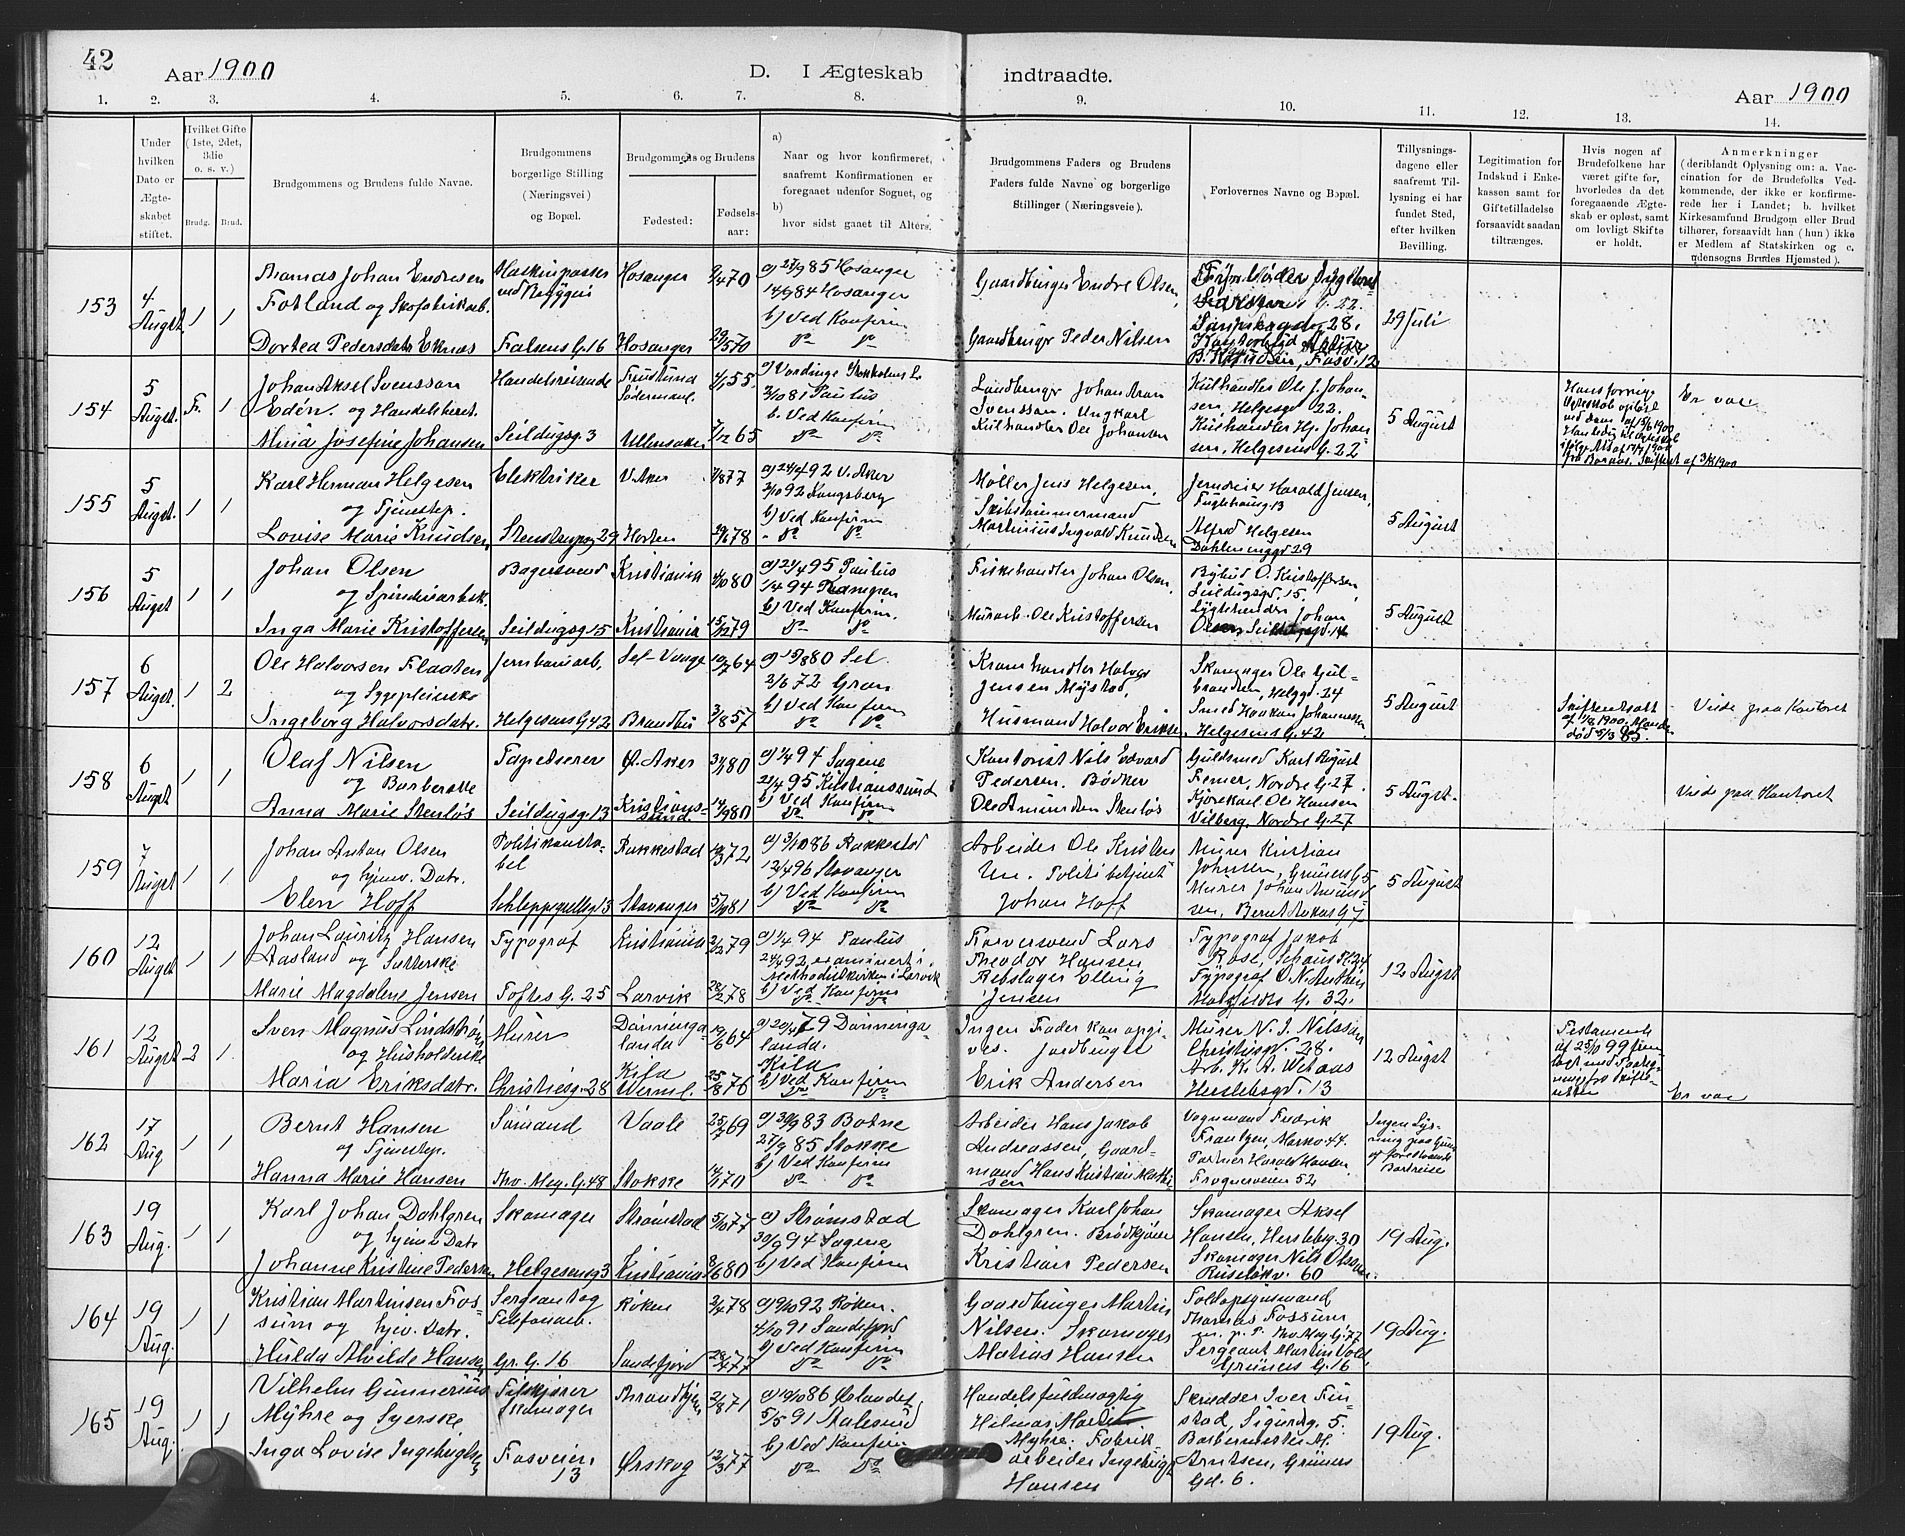 42
Aar 1900
D. I Ægteskab indtraadte.
Aar 1900
1. 2. 3. 4. 5. 6. 7. 8. 9. 10. 11. 12. 13. 14.
Under hvilken Dato er Ægteskabet stiftet.
Hvilket Gifte (1ste, 2det, 3die o. s. v.)
Brudg. Brud.
Brudgommens og Brudens fulde Navne.
Brudgommens borgerlige Stilling (Næringsvei) og Bopæl.
Brudgommens og Brudens
Fødested:
Fødselsaar:
a) Naar og hvor konfirmeret, saafremt Konfirmationen er foregaaet udenfor Sognet, og
b) hvor sidst gaaet til Alters.
Brudgommens Faders og Brudens Faders fulde Navne og borgerlige Stillinger (Næringsveie).
Forlovernes Navne og Bopæl.
Tillysningsdagene eller saafremt Tillysning ei har fundet Sted, efter hvilken Bevilling.
Legitimation for Indskud i Enkekassen samt for Giftetilladelse forsaavidt saadan tiltrænges.
Hvis nogen af Brudefolkene har været gifte før, hvorledes da det foregaaende Ægteskab er opløst, samt om lovligt Skifte er holdt.
Anmerkninger (deriblandt Oplysning om: a. Vaccination for de Brudefolks Vedkommende, der ikke er konfirmerede her i Landet; b. hvilket Kirkesamfund Brudgom eller Brud tilhører, forsaavidt han (hun) ikke er Medlem af Statskirken og c. udensogns Brudes Hjemsted).
153
4 Augst.
1 1
Johan Endresen
Fotland og Skofabrikarb.
Dortea Pedersdatr Eknæs
Falsens G. 16
Hosanger
Hosanger
9/4 70
29/5 70
a) 27/9 85 Hosanger
14/9 84 Hosanger
b) Ved Konfirm
do do
Gaardbruger Endre Olsen,
Gaardbrugr Peder Nilsen
29 Juli
154
5 Augst.
Fr. 1
Johan Aksel Svensson
Edén. og Handelsberet.
Mina Josefine Johansen
Handelsreisende
Seildugsg. 3
Ullensaker
4/1 55
7/12 65
2/10 81 Paulus
b. Ved Konfirm
do do
Svensson. Ungkarl
Kulhandler Ole Johansen
Kulhandler Ole J. Johansen, Helgesg 22.
Kulhandler Hj. Johansen, Helgesens G. 22
5 August
Er vac
155
5 Augst.
1 1
Karl Herman Helgesen
og Tjenestep.
Lovise Marie Knudsen
Elektriker
Stenstrupsg 29
V. Aker
Horten
a) 24/4 92 V. Aker
2/10 92 Kongsberg
b) Ved Konfirm
do do
Møller Jens Helgesen,
Skibstømmermand
Martinius Ingvald Knudsen
Jerndreier Harald Jensen,
Fuglehaug 13
Alfred Helgesen
Dahlenenggd 29
5 August
156
5 Augst
1 1
Johan Olsen
og Spinderiarbsk.
Inga Marie Kristoffersen
Bagersvend
Seildugsg 15
Kristiania
Kristiania
4/10 80
15/12 79
a) 21/4 95 Paulus
1/4 94
b) Ved Konfirm.
do do
Fiskehandler Johan Olsen
Murarb. Ole Kristoffersen
Bybud O. Kristoffersen,
Seildugsgd. 15,
Johan
Olsen, Seildugsgd. 14
5 August
157
6 Augst.
1 2
Ole Halvorsen Flaaten
og Sygepleierske
Ingeborg Halvorsdatr.
Jernbanearb.
Helgesens G 42
Sel-Vaage
Brandbu
10/7 64
3/8 57
a) 15/8 80 Sel.
2/6 72 Gran
b) Ved Konfirm
do do
Kramhandler Halvor
Jensen Mystad,
Husmand Halvor Eriksen,
Skomager Ole Gulbrandsen, Helggd. 24
Smed Haakon Johannessen
Helgesens G. 42
5 August
Skifteattest
af 1/8 1900. Manden
død 5/3 85.
Vidse paa Kontoret
158
6 Augst
1 1
Olaf Nilsen
og Barberske
Anna Marie Stenløs
Tapetserer
Seildugsg. 13
Ø. Aker
Kristianssund
31/1 80
14/9 80
a) 1/4 94 Sagene
21/4 95 Kristianssund
b) Ved Konfirm
do do
Kontorist Nils Edvard
Pedersen. Bødker
Ole Amundsen Stenløs
Guldsmed Karl August
Femer, Nordre G. 27.
Kjørekarl Ole Hansen
Vilberg, Nordre G. 27
5 Augst.
Vidse paa Kontoret
159
7 Augst
1 1
Johan Anton Olsen
og hjemv. Datr.
Elen Hoff
Politikonstabel
Schleppegrellsg 13
Rakkestad
Stavanger
19/3 72
5/10 81
a) 3/10 86 Rakkestad
12/4 96 Stavanger
b) Ved Konfirm
do do
Arbeider Ole Kristen
Politibetjent
Johan Hoff
Murer Kristian
Johnsen, Grüners G 5
Murer Johan Amundsen, Bernt Ankers G 7
5 August
160
12 Augst
1 1
Johan Lauritz Hansen
Aasland og Sætterske
Marie Magdalene Jensen
Typograf
Toftes G. 25
Kristiania
Larvik
2/2 79
28/2 78
a) 1/4 94 Paulus
24/4 92 examineret i
Methodistkirken i Larvik
b) Ved Konfirm
do do
Farversvend Lars
Theodor Hansen
Rebslager Elling
Jensen
Typograf Jakob
Rose, Schous Pl 24
Typograf O. N. Anthin
Markveiens G. 32.
12 Augst
161
12 Augst
2 1
Sven Magnus Lindstrøm
og Husholderske
Maria Eriksdatr.
Murer
Christiesg. 28
Dänningelanda
Kila
Werml.
19/6 64
25/8 76
a) 20/4 79 Dänningelanda.
Kila
b) Ved Konfirm
do do
Ingen Fader kan opgives. Jordbruger
Erik Andersen
Murer N. J. Nilsson
Christiesgd. 28.
Arb. K. A. Wetaas
Herslebsgd. 13
12 Augst
Testamente
af 25/10 99
Er vac
162
17 Aug
1 1
Bernt Hansen
og Tjenestep.
Hanna Marie Hansen
Sømand
Thv. Mey. G. 48
Vaale
Stokke
25/7 69
14/1 70
a) 30/9 83 Botne
27/9 85 Stokke
b) Ved Konfirm
do do
Arbeider Hans Jakob
Andreassen, Gaardmand Hans Kristian Mathisen
Vognmand Fredrik
Frantzen, Markv. 47.
Harald Hansen
Frognerveien 52
Ingen Lysning paa Grund
af forestaaende
Bortreise
163
19 Aug.
1 1
Karl Johan Dahlgren
og hjemv Datr
Johanne Kristine Pedersen
Skomager
Helgesensg 3
Strømstad
Kristiania
5/10 77
8/6 80
a) Strømstad
30/9 94 Sagene
b) Ved Konfirm
Skomager Karl Johan
Dahlgren. Brødkjører
Kristian Pedersen
Skomager Aksel
Hansen, Herslebsg. 30
Skomager Nils Olsson
Ruseløkv. 60
19 Aug.
164
19 Aug.
1 1
Kristian Martinsen Fossum og hjemv. Datr.
Hulda Alvilde Hansen
Sergeant og
Telefonarb.
Gr. G. 16
Røken
Sandefjord
2/4 78
28/4 77
a) 9/10 92 Røken.
4/10 91 Sandefjord
b) Ved Konfirm
do do
Gaardbruger Martin
Nilsen. Skomager
Matias Hansen
Toldopsynsmand
Thomas Fossum,
Thv. Mey. G. 77
Sergeant Martin Vold,
Grüners G. 16
19 Aug.
165
19 Aug.
1 1
Vilhelm Gunnerius
Myhre og Syerske
Inga Lovise Ingebrigtsen
Filskjærer
Skomager
Fosveien
13
Throndhjem
Ørskog
2/8 71
12/3 77
a) 19/10 86 Ørlandet
5/5 91 Aalesund
b) Ved Konfirm
do do
Handelsfuldmægtig
Hilmar Martin
Myhre. Fabrikarbeider Ingebrigt
Hansen
Skrædder Iver Finstad, Sigurdg. 5.
Barbermester M.
Arntsen, Grüners
Gd. 6.
19 Aug.